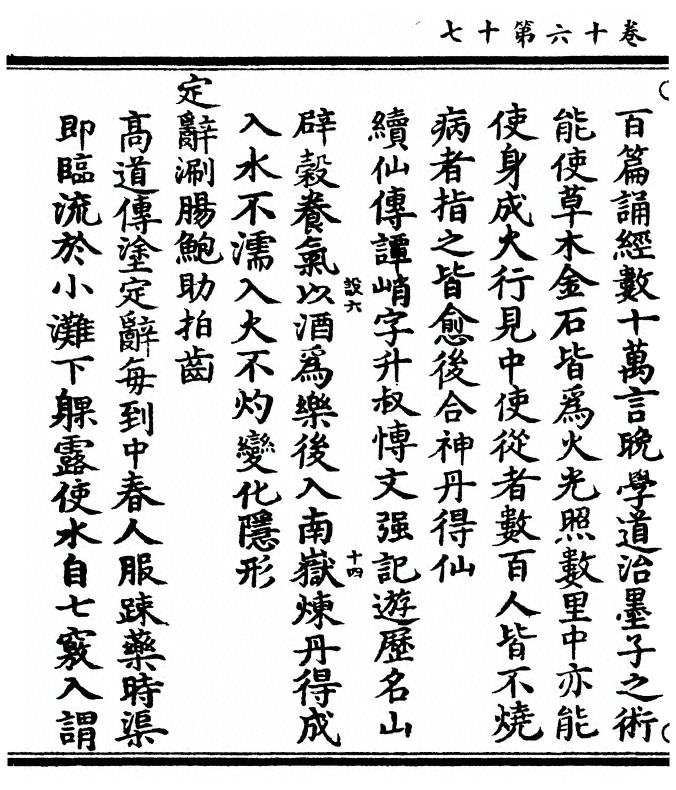 卷十六第十七
百篇誦經數十萬言晚學道治墨子之術
能使草木金石皆爲火光照數里中亦能
使身成火行見中使從者數百人皆不燒
病者指之皆愈後合神丹得仙
續仙傳譚峭字升叔愽文强記遊歷名山
辟穀養氣以酒爲樂後入南嶽煉丹得成
設六
十四
入水不濡入火不灼變化隱形
定辭涮腸鮑助拍齒
高道傳塗定辭每到中春人服踈藥時渠
即臨流於小灘下躶露使水自七竅入謂